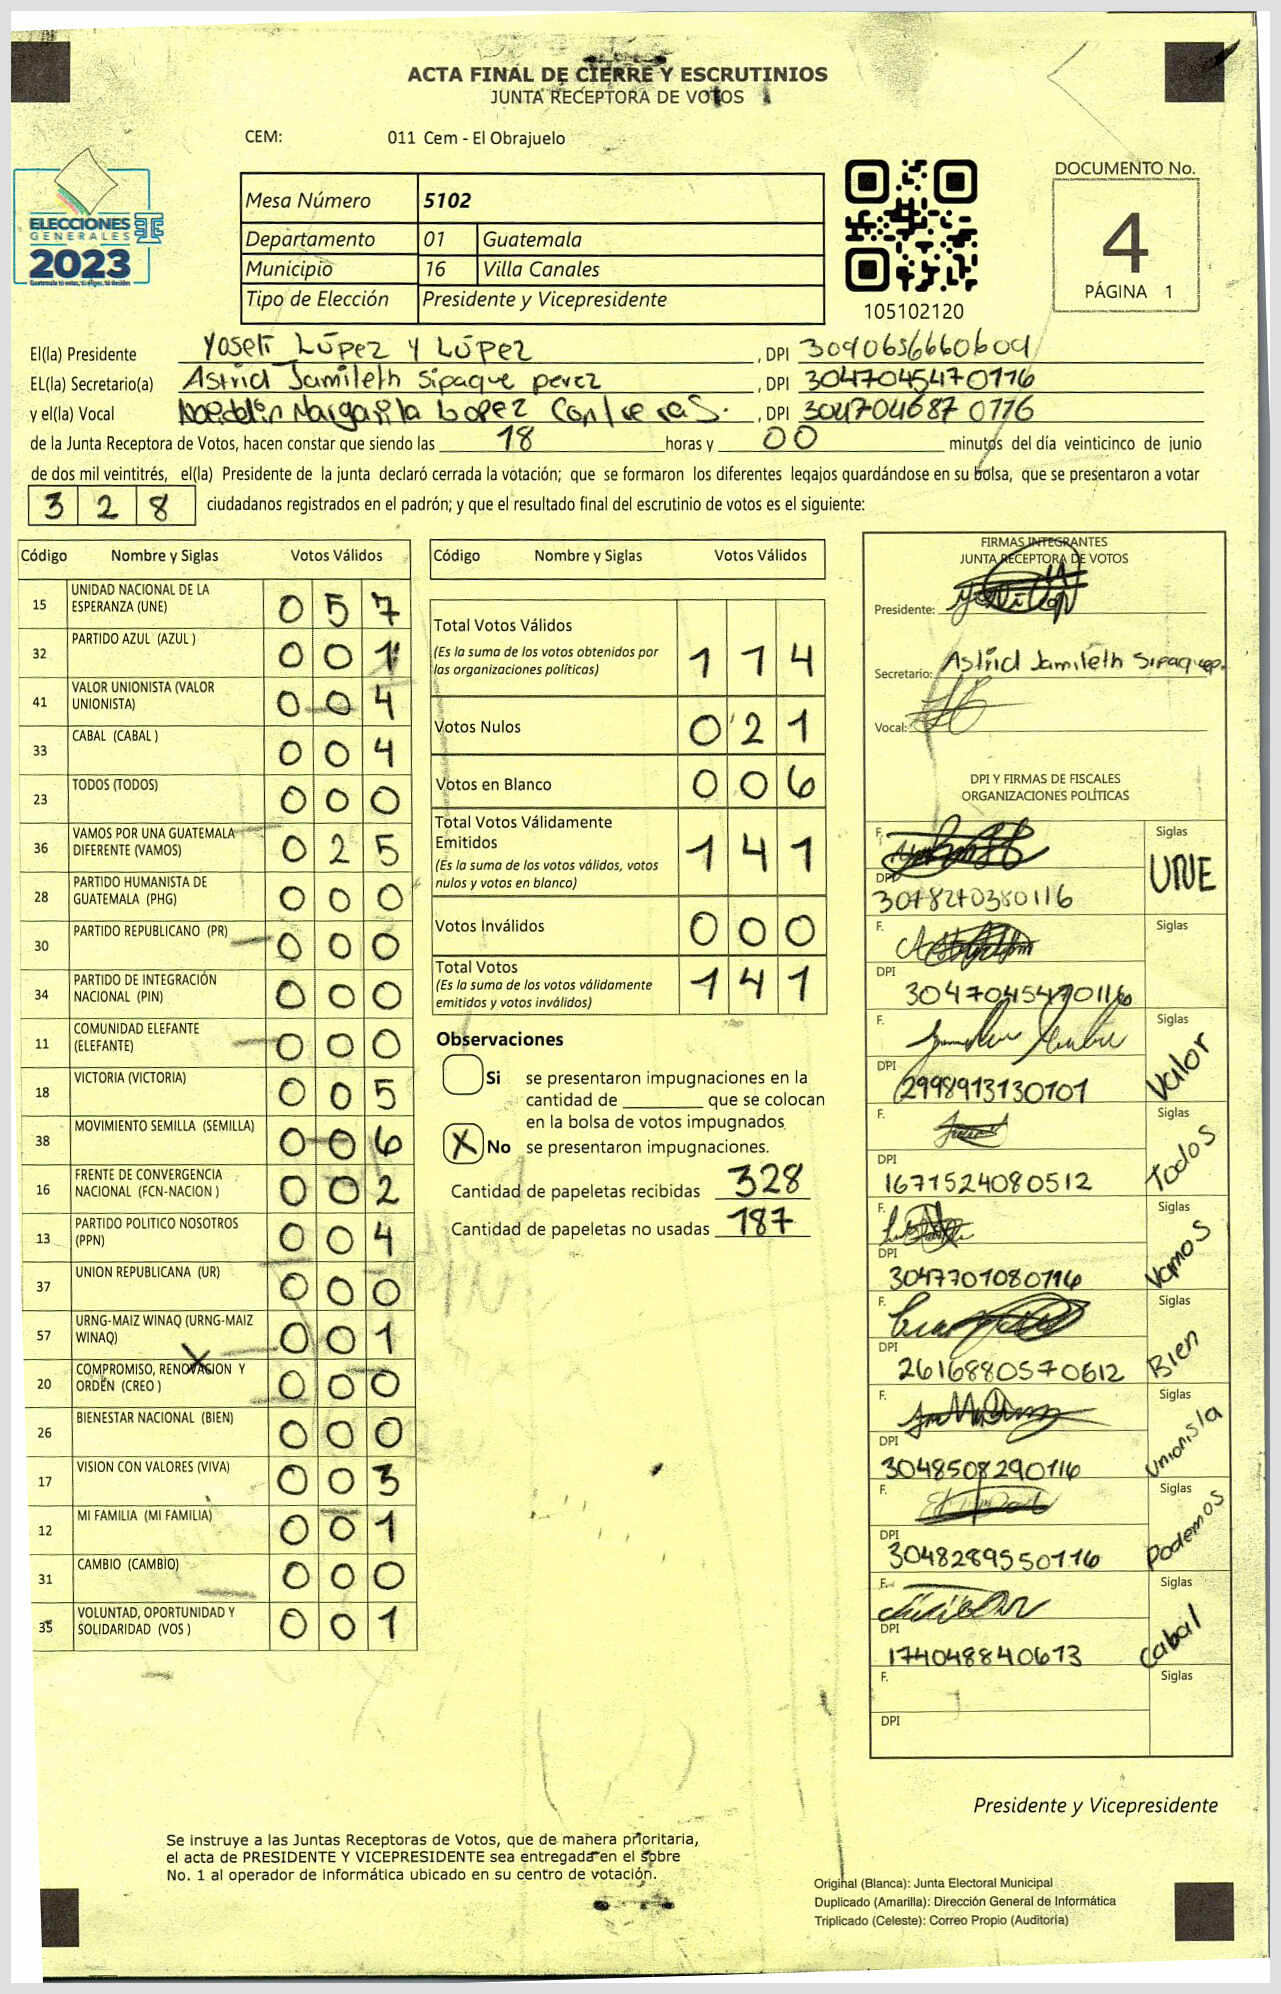 ACTA FINAL DE CIERRE Y ESCRUTINIOS
JUNTA RECEPTORA DE VOTOS
CEM: 011 Cem - El Obrajuelo
ELECCIONES
GENERALES
2023
Guatemala tú votas, tú eliges, tú decides
Mesa Número 5102
Departamento 01 Guatemala
Municipio 16 Villa Canales
Tipo de Elección Presidente y Vicepresidente
105102120
DOCUMENTO No.
4
PÁGINA 1
El(la) Presidente Yoseli López y López , DPI 3090656660609
EL(la) Secretario(a) Astrid Jamileth Sipaque perez , DPI 3047045470116
y el(la) Vocal Margarita Lopez Contreras. , DPI 3047046870116
de la Junta Receptora de Votos, hacen constar que siendo las 18 horas y 00 minutos del día veinticinco de junio
de dos mil veintitrés, el(la) Presidente de la junta declaró cerrada la votación; que se formaron los diferentes legajos guardándose en su bolsa, que se presentaron a votar
3 2 8 ciudadanos registrados en el padrón; y que el resultado final del escrutinio de votos es el siguiente:
Código Nombre y Siglas Votos Válidos
15 UNIDAD NACIONAL DE LA ESPERANZA (UNE) 0 5 7
32 PARTIDO AZUL (AZUL ) 0 0 1
41 VALOR UNIONISTA (VALOR UNIONISTA) 0 0 4
33 CABAL (CABAL ) 0 0 4
23 TODOS (TODOS) 0 0 0
36 VAMOS POR UNA GUATEMALA DIFERENTE (VAMOS) 0 2 5
28 PARTIDO HUMANISTA DE GUATEMALA (PHG) 0 0 0
30 PARTIDO REPUBLICANO (PR) 0 0 0
34 PARTIDO DE INTEGRACIÓN NACIONAL (PIN) 0 0 0
11 COMUNIDAD ELEFANTE (ELEFANTE) 0 0 0
18 VICTORIA (VICTORIA) 0 0 5
38 MOVIMIENTO SEMILLA (SEMILLA) 0 0 6
16 FRENTE DE CONVERGENCIA NACIONAL (FCN-NACION ) 0 0 2
13 PARTIDO POLITICO NOSOTROS (PPN) 0 0 4
37 UNION REPUBLICANA (UR) 0 0 0
57 URNG-MAIZ WINAQ (URNG-MAIZ WINAQ) 0 0 1
20 COMPROMISO, RENOVACION Y ORDEN (CREO ) 0 0 0
26 BIENESTAR NACIONAL (BIEN) 0 0 0
17 VISION CON VALORES (VIVA) 0 0 3
12 MI FAMILIA (MI FAMILIA) 0 0 1
31 CAMBIO (CAMBIO) 0 0 0
35 VOLUNTAD, OPORTUNIDAD Y SOLIDARIDAD (VOS ) 0 0 1
Código Nombre y Siglas Votos Válidos
Total Votos Válidos
(Es la suma de los votos obtenidos por las organizaciones políticas) 1 1 4
Votos Nulos 0 2 1
Votos en Blanco 0 0 6
Total Votos Válidamente Emitidos
(Es la suma de los votos válidos, votos nulos y votos en blanco) 1 4 1
Votos Inválidos 0 0 0
Total Votos
(Es la suma de los votos válidamente emitidos y votos inválidos) 1 4 1
Observaciones
Si se presentaron impugnaciones en la
cantidad de ________ que se colocan
en la bolsa de votos impugnados
X No se presentaron impugnaciones.
Cantidad de papeletas recibidas 328
Cantidad de papeletas no usadas 187
FIRMAS INTEGRANTES
JUNTA RECEPTORA DE VOTOS
Presidente:
Secretario: Astrid Jamileth Sipaque p.
Vocal:
DPI Y FIRMAS DE FISCALES
ORGANIZACIONES POLÍTICAS
F. Siglas UNE
DPI 3048210380116
F. Siglas
DPI 3047045470116
F. Siglas Valor
DPI 2998913130101
F. Siglas Todos
DPI 1671524080512
F. Siglas Vamos
DPI 3047701080116
F. Siglas Bien
DPI 2616880570612
F. Siglas Unionista
DPI 3048508290116
F. Siglas Podemos
DPI 3048289550116
F. Siglas Cabal
DPI 174048840613
F. Siglas
DPI
Presidente y Vicepresidente
Se instruye a las Juntas Receptoras de Votos, que de manera prioritaria,
el acta de PRESIDENTE Y VICEPRESIDENTE sea entregada en el sobre
No. 1 al operador de informática ubicado en su centro de votación.
Original (Blanca): Junta Electoral Municipal
Duplicado (Amarilla): Dirección General de Informática
Triplicado (Celeste): Correo Propio (Auditoría)